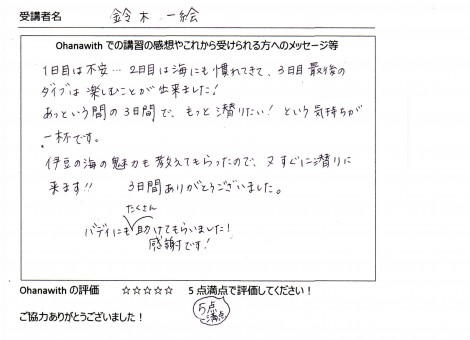 受講者名 鈴木 一絵
Ohanawith での講習の感想やこれから受けられる方へのメッセージ等
1日目は不安… 2日目は海にも慣れてきて、3日目最後の
ダイブは楽しむことが出来ました!
あっという間の3日間で、もっと潜りたい!という気持ちが
一杯です。
伊豆の海の魅力も教えてもらったので、又すぐに潜りに
来ます!! 3日間ありがとうございました。
たくさん
バディにも助けてもらいました!
感謝です!
Ohanawith の評価 ☆☆☆☆☆ 5点満点で評価してください!
5点
満点
ご協力ありがとうございました!